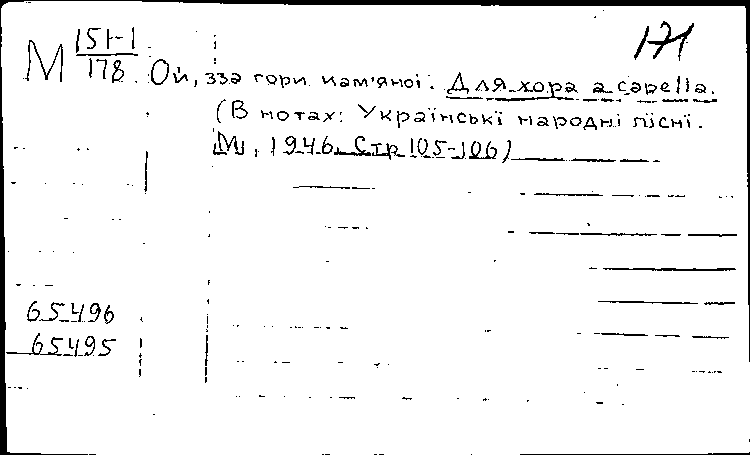 171
М 151-1
178. Ой, ззa гори кам'яної. Для хора a capella.
(В нотах: Українські народні пісні.
М, 1946. Стр 105-106)
65496
65495